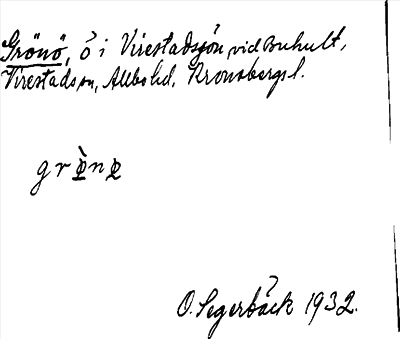 Grönö, ö i Virestadsjön vid Buhult,
Virestads sn, Allbo hd, Kronobergs l.
O. Segerbäck 1932.